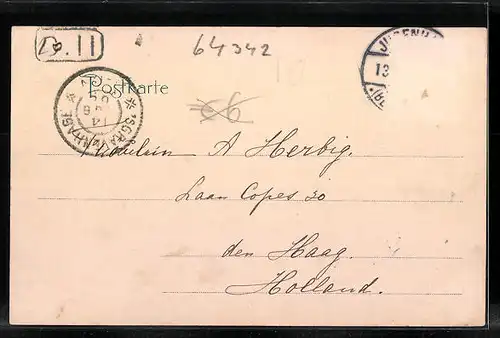 64342
Postkarte
Fräulein A Herbig.
Laan Copes 30
den Haag.
Holland.